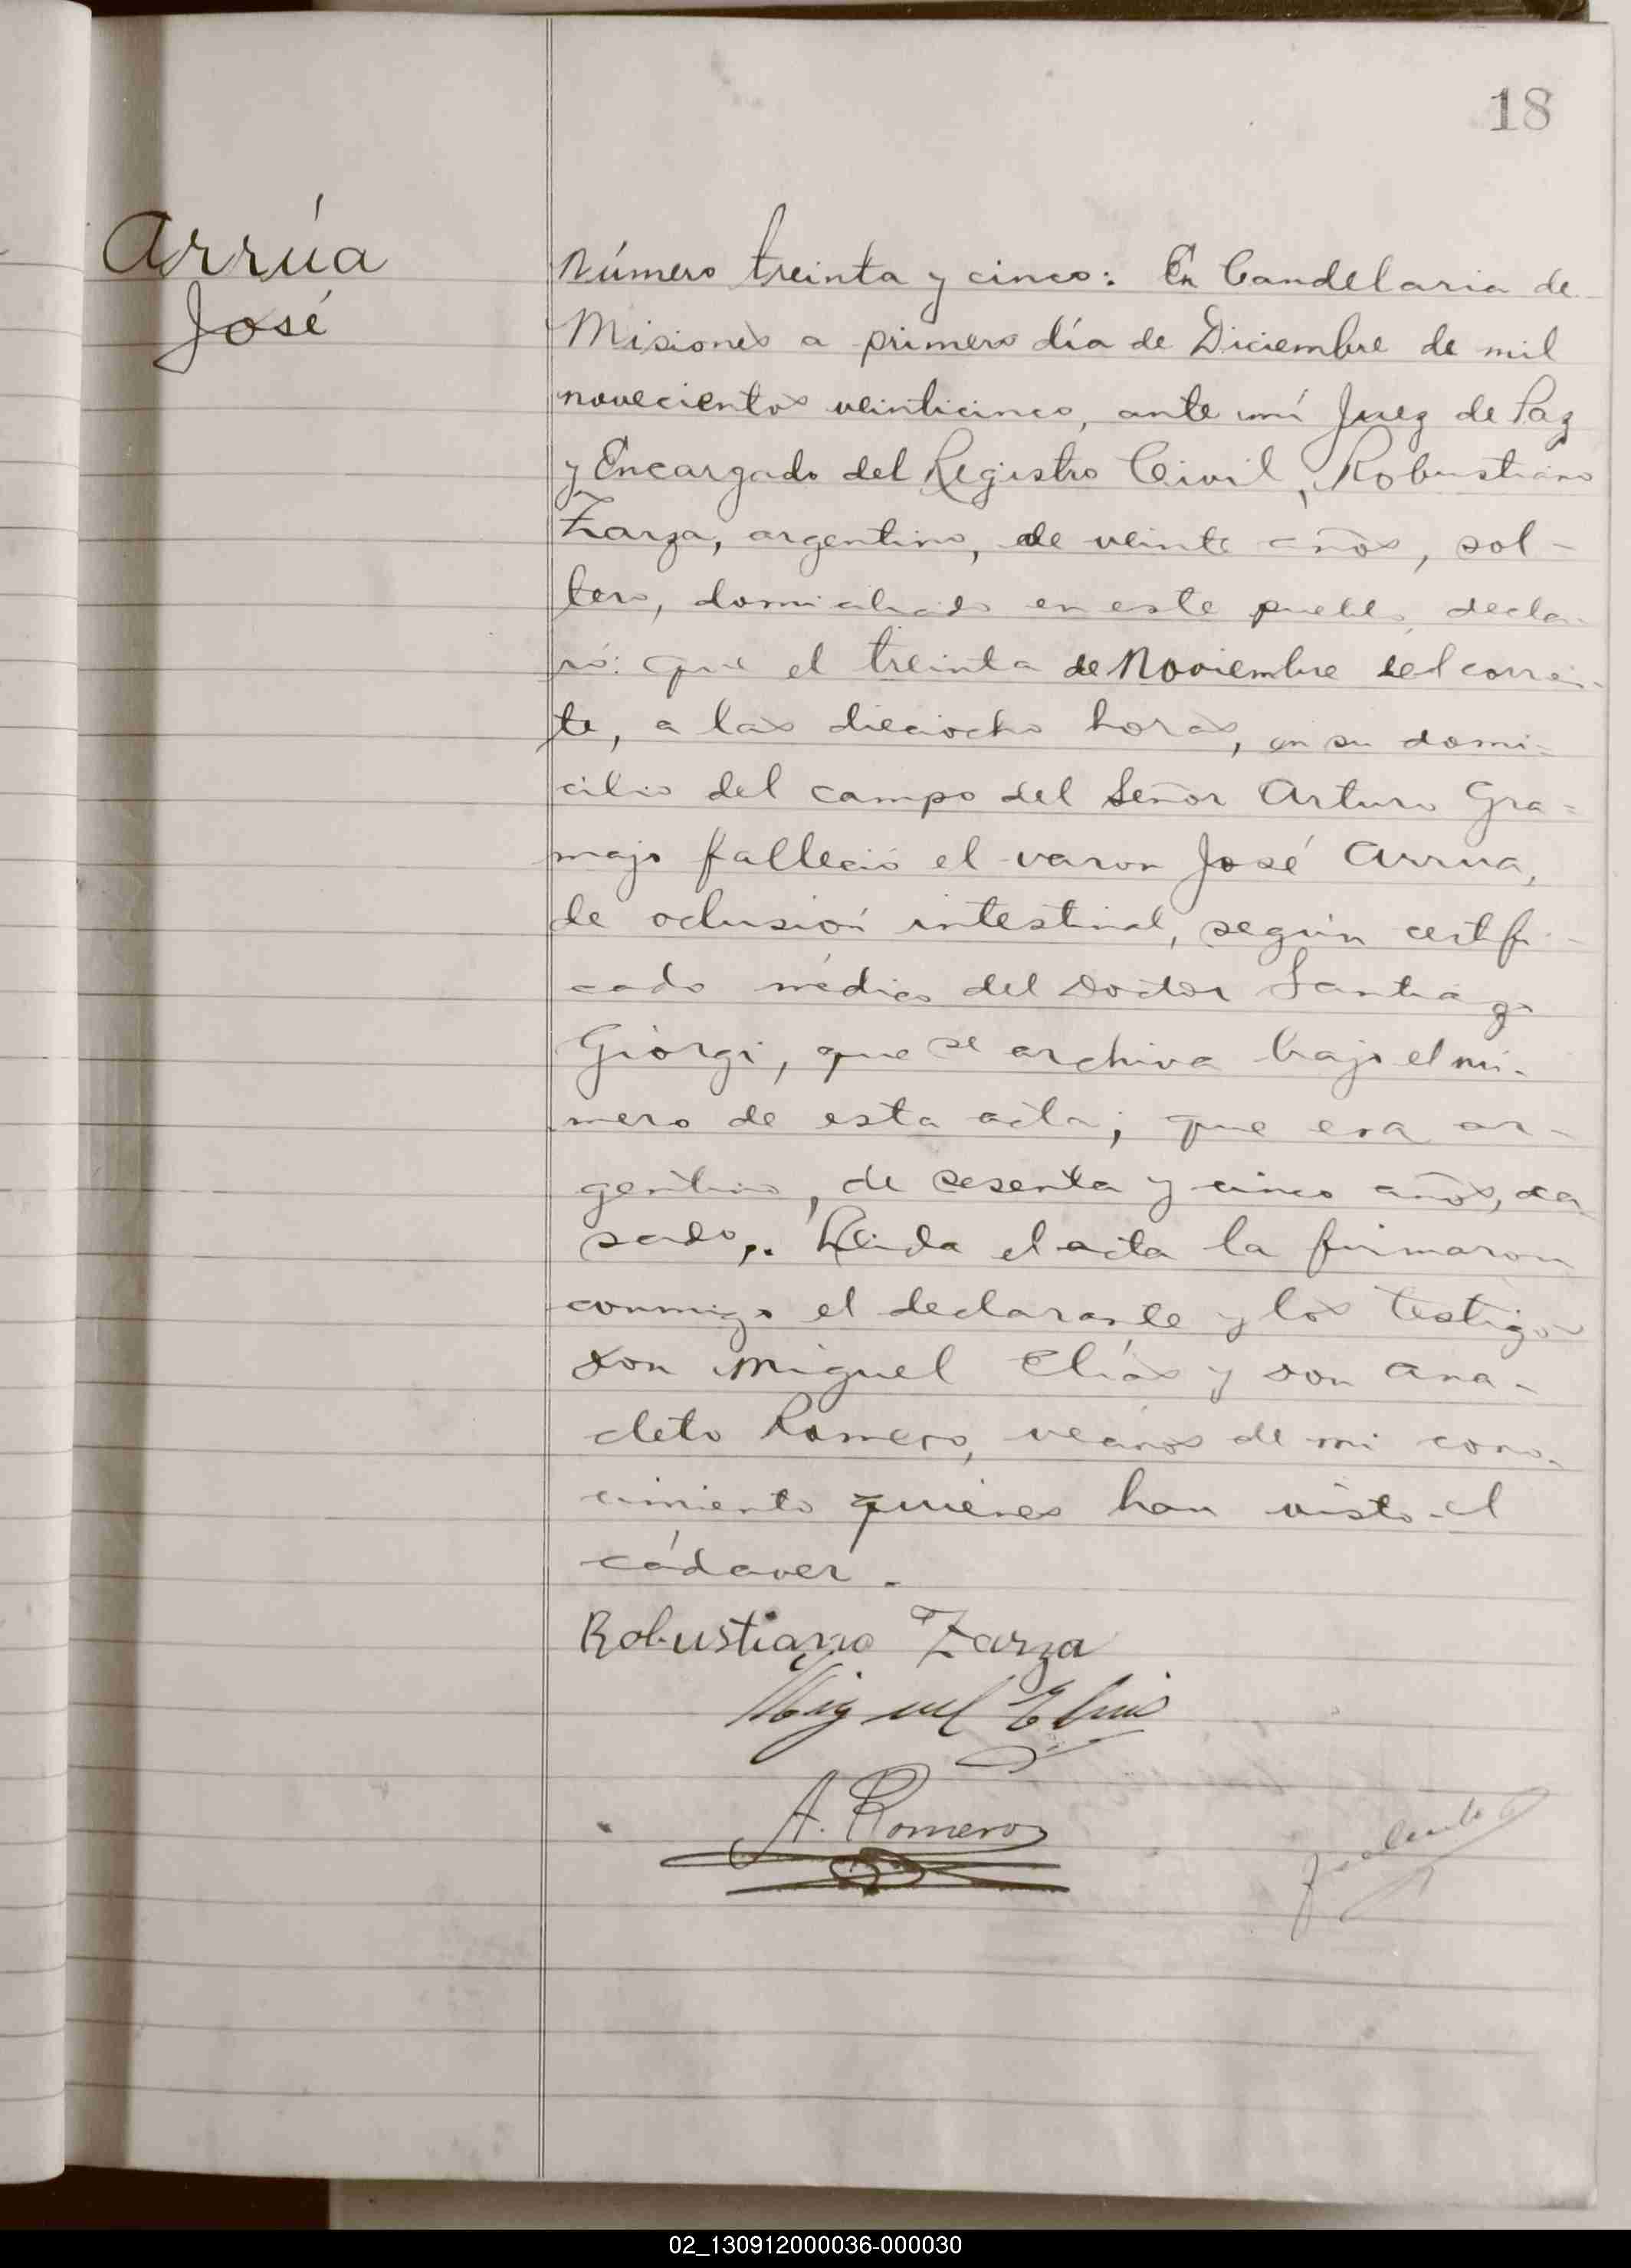 18
Arrúa
José
Número treinta y cinco: En Candelaria de
Misiones a primero día de Diciembre de mil
novecientos veinticinco, ante mí Juez de Paz
y Encargado del Registro Civil, Robustiano
Zarza, argentino, de veinte años, sol-
tero, domiciliado en este pueblo, decla-
ró: que el treinta de Noviembre del corrien-
te, a las dieciocho horas, en su domi-
cilio del campo del Señor Arturo Gra-
majo falleció el varon José Arrua,
de oclusión intestinal, según certifi-
cado médico del Doctor Santiago
Giorgi, que se archiva bajo el nú-
mero de esta acta; que era ar-
gentino, de sesenta y cinco años, ca
sado,. Leida el acta la firmaron
conmigo el declarante y los testigos
Don Miguel Elías y Don Ana-
cleto Romero, vecinos de mi cono-
cimiento quienes han visto el
cádaver.
Robustiano Zarza
Miguel Elias
A. Romero
02_130912000036-000030